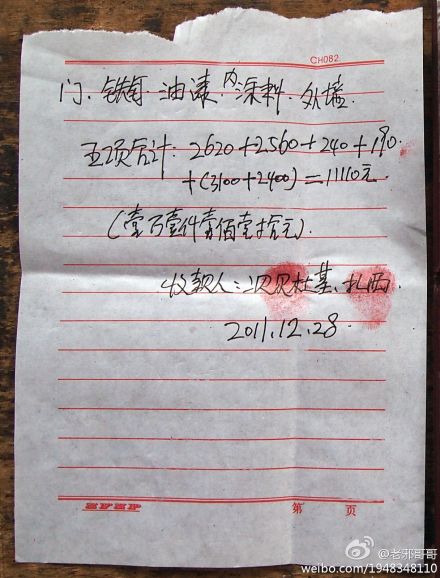 CH082
门、铁門、油漆、内涂料、外墙.
五项合计: 2620+2560+240+190
+(3100+2400)=11110元.
(壹万壹仟壹佰壹拾元).
收款人: 次贝杜基、扎西.
2011.12.28.
第 页
@老邪哥哥
weibo.com/1948348110